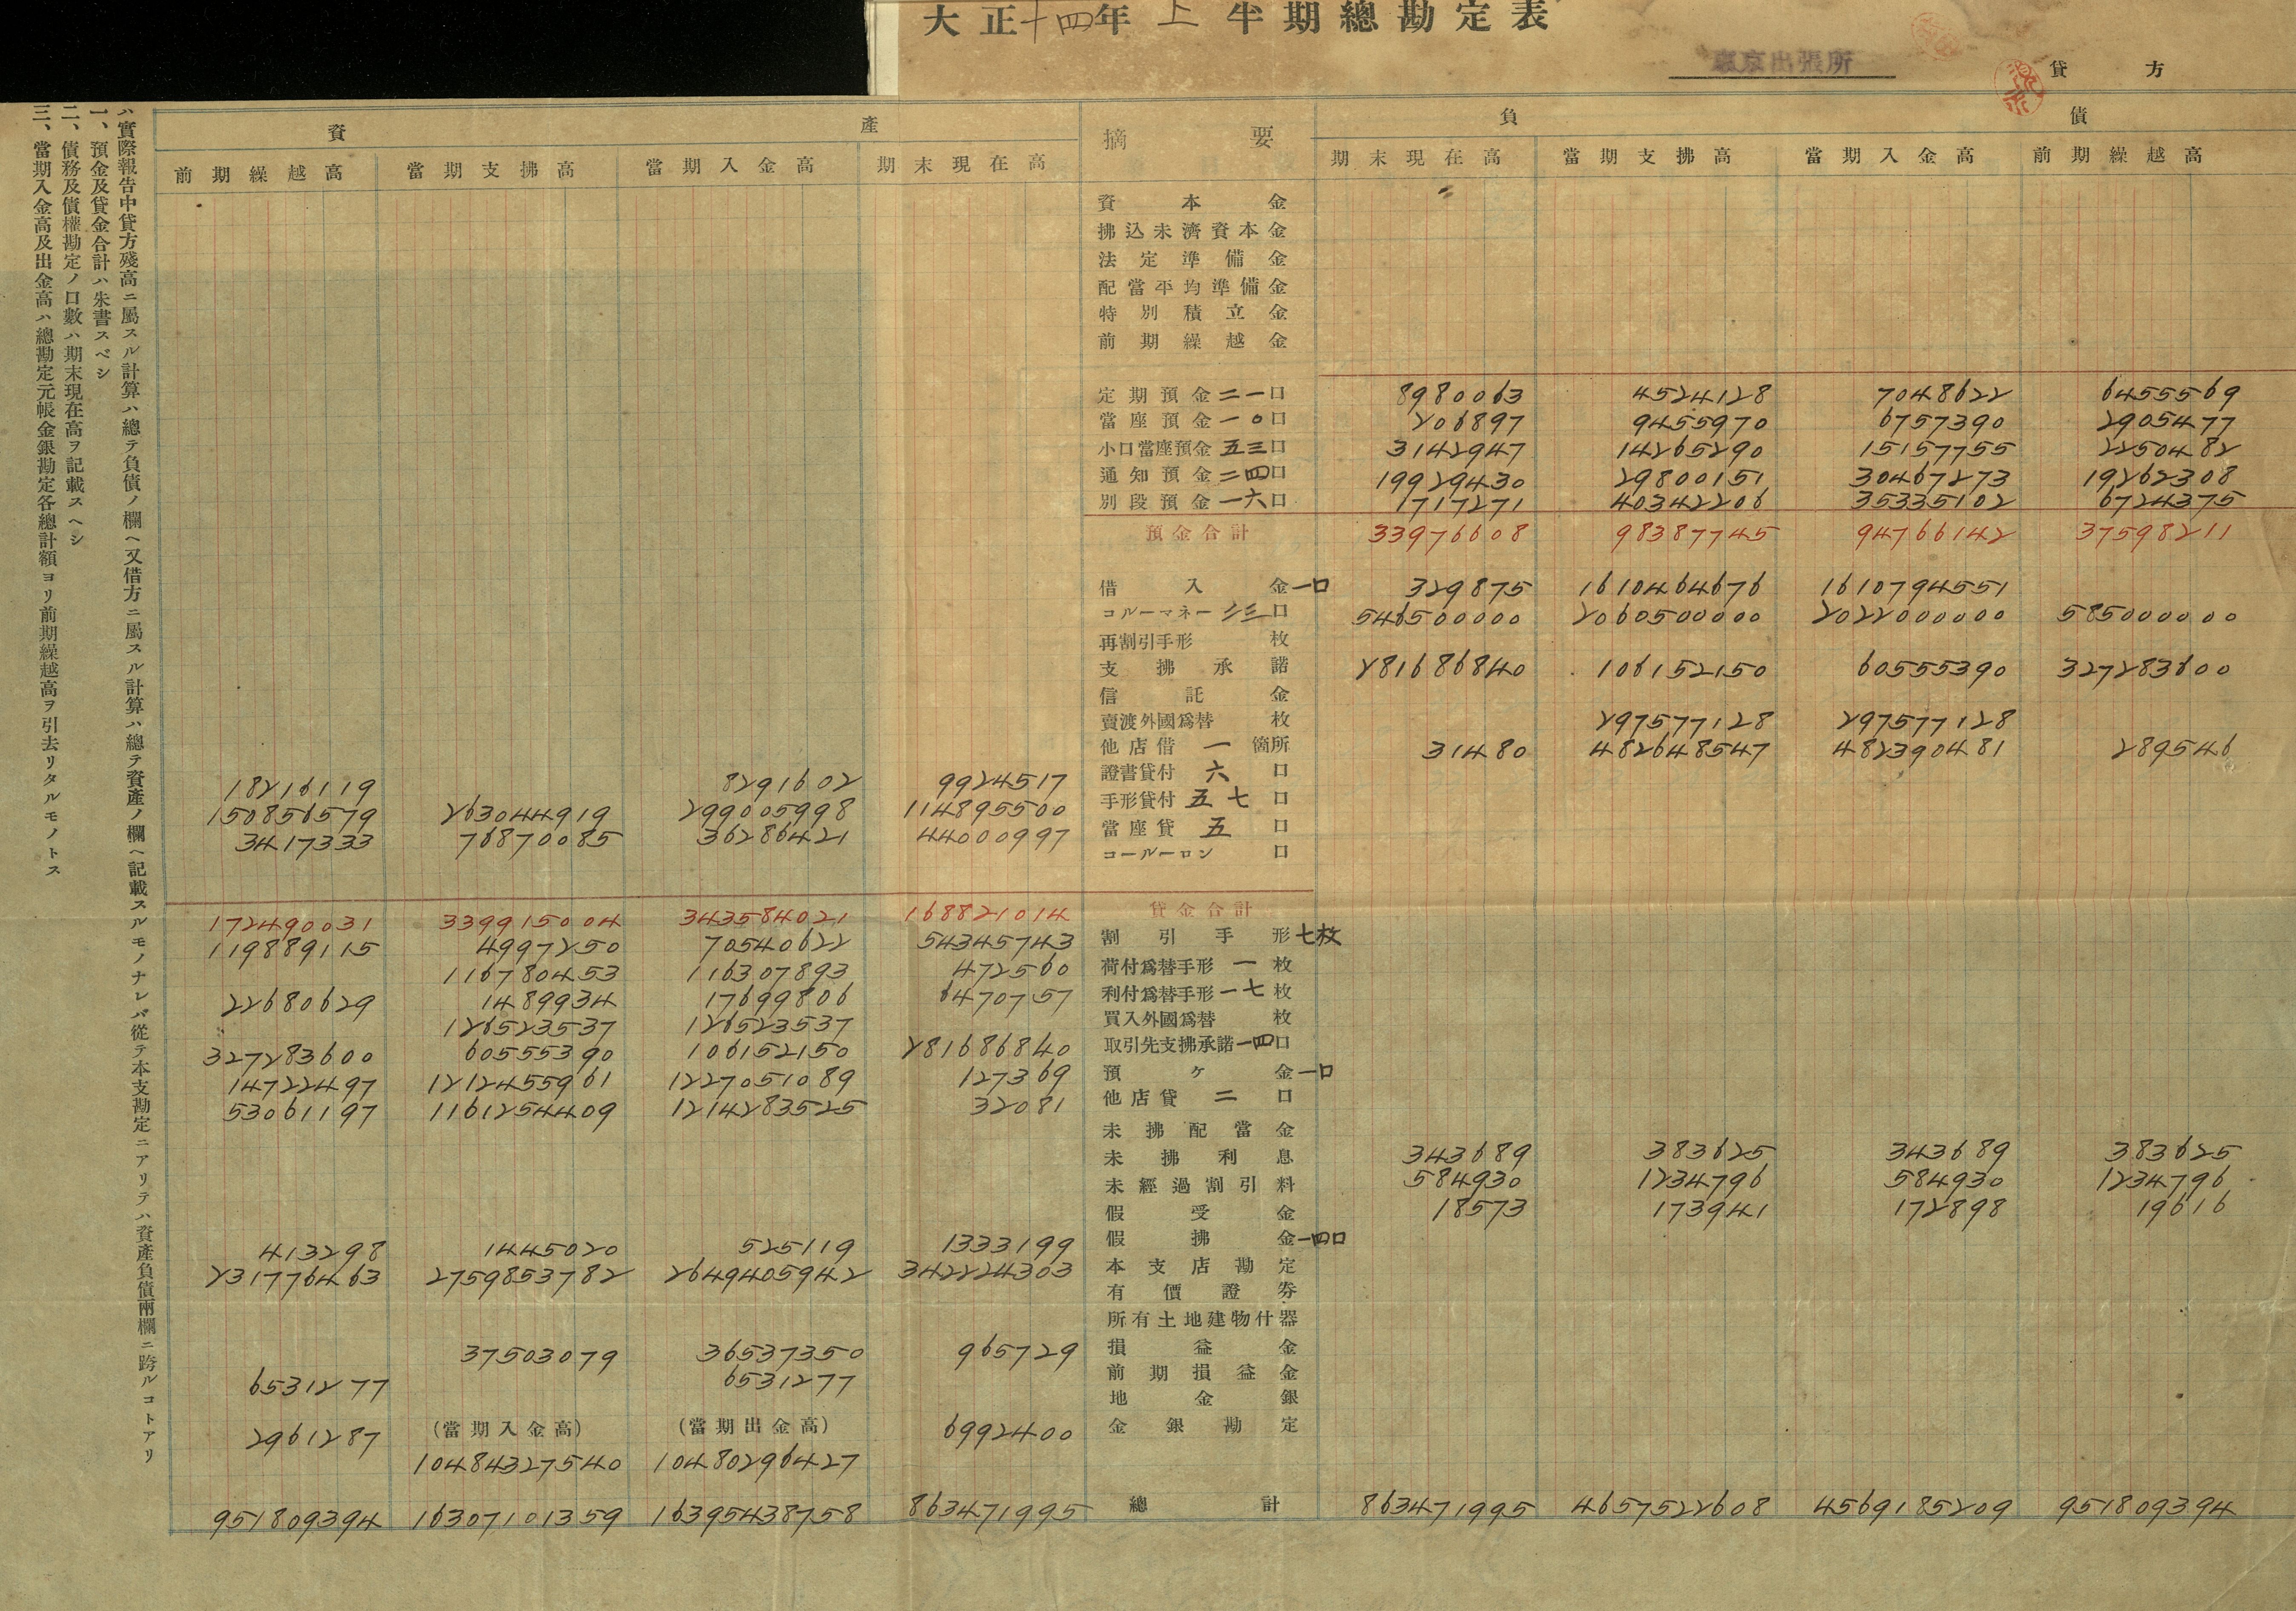 大正十四年上半期總勘定表
東京出張所
貸方
資產 摘要 負債
前期繰越高 當期支拂高 當期入金高 期末現在高 期末現在高 當期支拂高 當期入金高 前期繰越高
資本金
拂込未濟資本金
法定準備金
配當平均準備金
特別積立金
前期繰越金
定期預金二一口 8980063 4524128 7048622 6455569
當座預金一〇口 206897 9455970 6757390 2905477
小口當座預金五三口 3142947 14265290 15157755 2250482
通知預金二四口 19929430 29800151 30467273 19262308
別段預金一六口 1717271 40342206 35335102 6724375
預金合計 33976608 98387745 94766142 37598211
借入金一口 329875 1610464676 1610794551
コルーマネー三三口 546500000 2060500000 2022000000 585000000
再割引手形 枚
支拂承諾 281686840 106152150 60555390 327283600
信託金
賣渡外國爲替 枚 297577128 297577128
他店借 一 箇所 31480 482648547 482390481 289546
18216119 8291602 9924517 證書貸付 六 口
150856579 263044919 299005998 114895500 手形貸付 五七 口
3417333 76870085 36286421 44000997 當座貸 五 口
コールーロン 口
172490031 339915004 343584021 168821014 貸金合計
119889115 4997250 70540622 54345743 割引手形七枚
116780453 116307893 472560 荷付爲替手形 一 枚
22680629 1489934 17699806 6470757 利付爲替手形一七枚
126523537 126523537 買入外國爲替 枚
327283600 60555390 106152150 281686840 取引先支拂承諾一四口
14722497 1212455961 1227051089 127369 預ケ金一口
53061197 1161254409 1214283525 32081 他店貸 二 口
未拂配當金
未拂利息 343689 383625 343689 383625
未經過割引料 584930 1234796 584930 1234796
假受金 18573 173941 172898 19616
413298 1445020 525119 1333199 假拂金一四口
231776463 2759853782 2649405942 342224303 本支店勘定
有價證券
所有土地建物什器
37503079 36537350 965729 損益金
6531277 6531277 前期損益金
地金銀
2961287 (當期入金高) (當期出金高) 6992400 金銀勘定
10484327540 10480296427
951809394 16307101359 16395438758 863471995 總計 863471995 4657522608 4569185209 951809394
ハ實際報告中貸方殘高ニ屬スル計算ハ總テ負債ノ欄ヘ又借方ニ屬スル計算ハ總テ資產ノ欄ヘ記載スルモノナレバ從テ本支勘定ニアリテハ資產負債兩欄ニ跨ルコトアリ
一、預金及貸金合計ハ朱書スベシ
二、債務及債權勘定ノ口數ハ期末現在高ヲ記載スヘシ
三、當期入金高及出金高ハ總勘定元帳金銀勘定各總計額ヨリ前期繰越高ヲ引去リタルモノトス